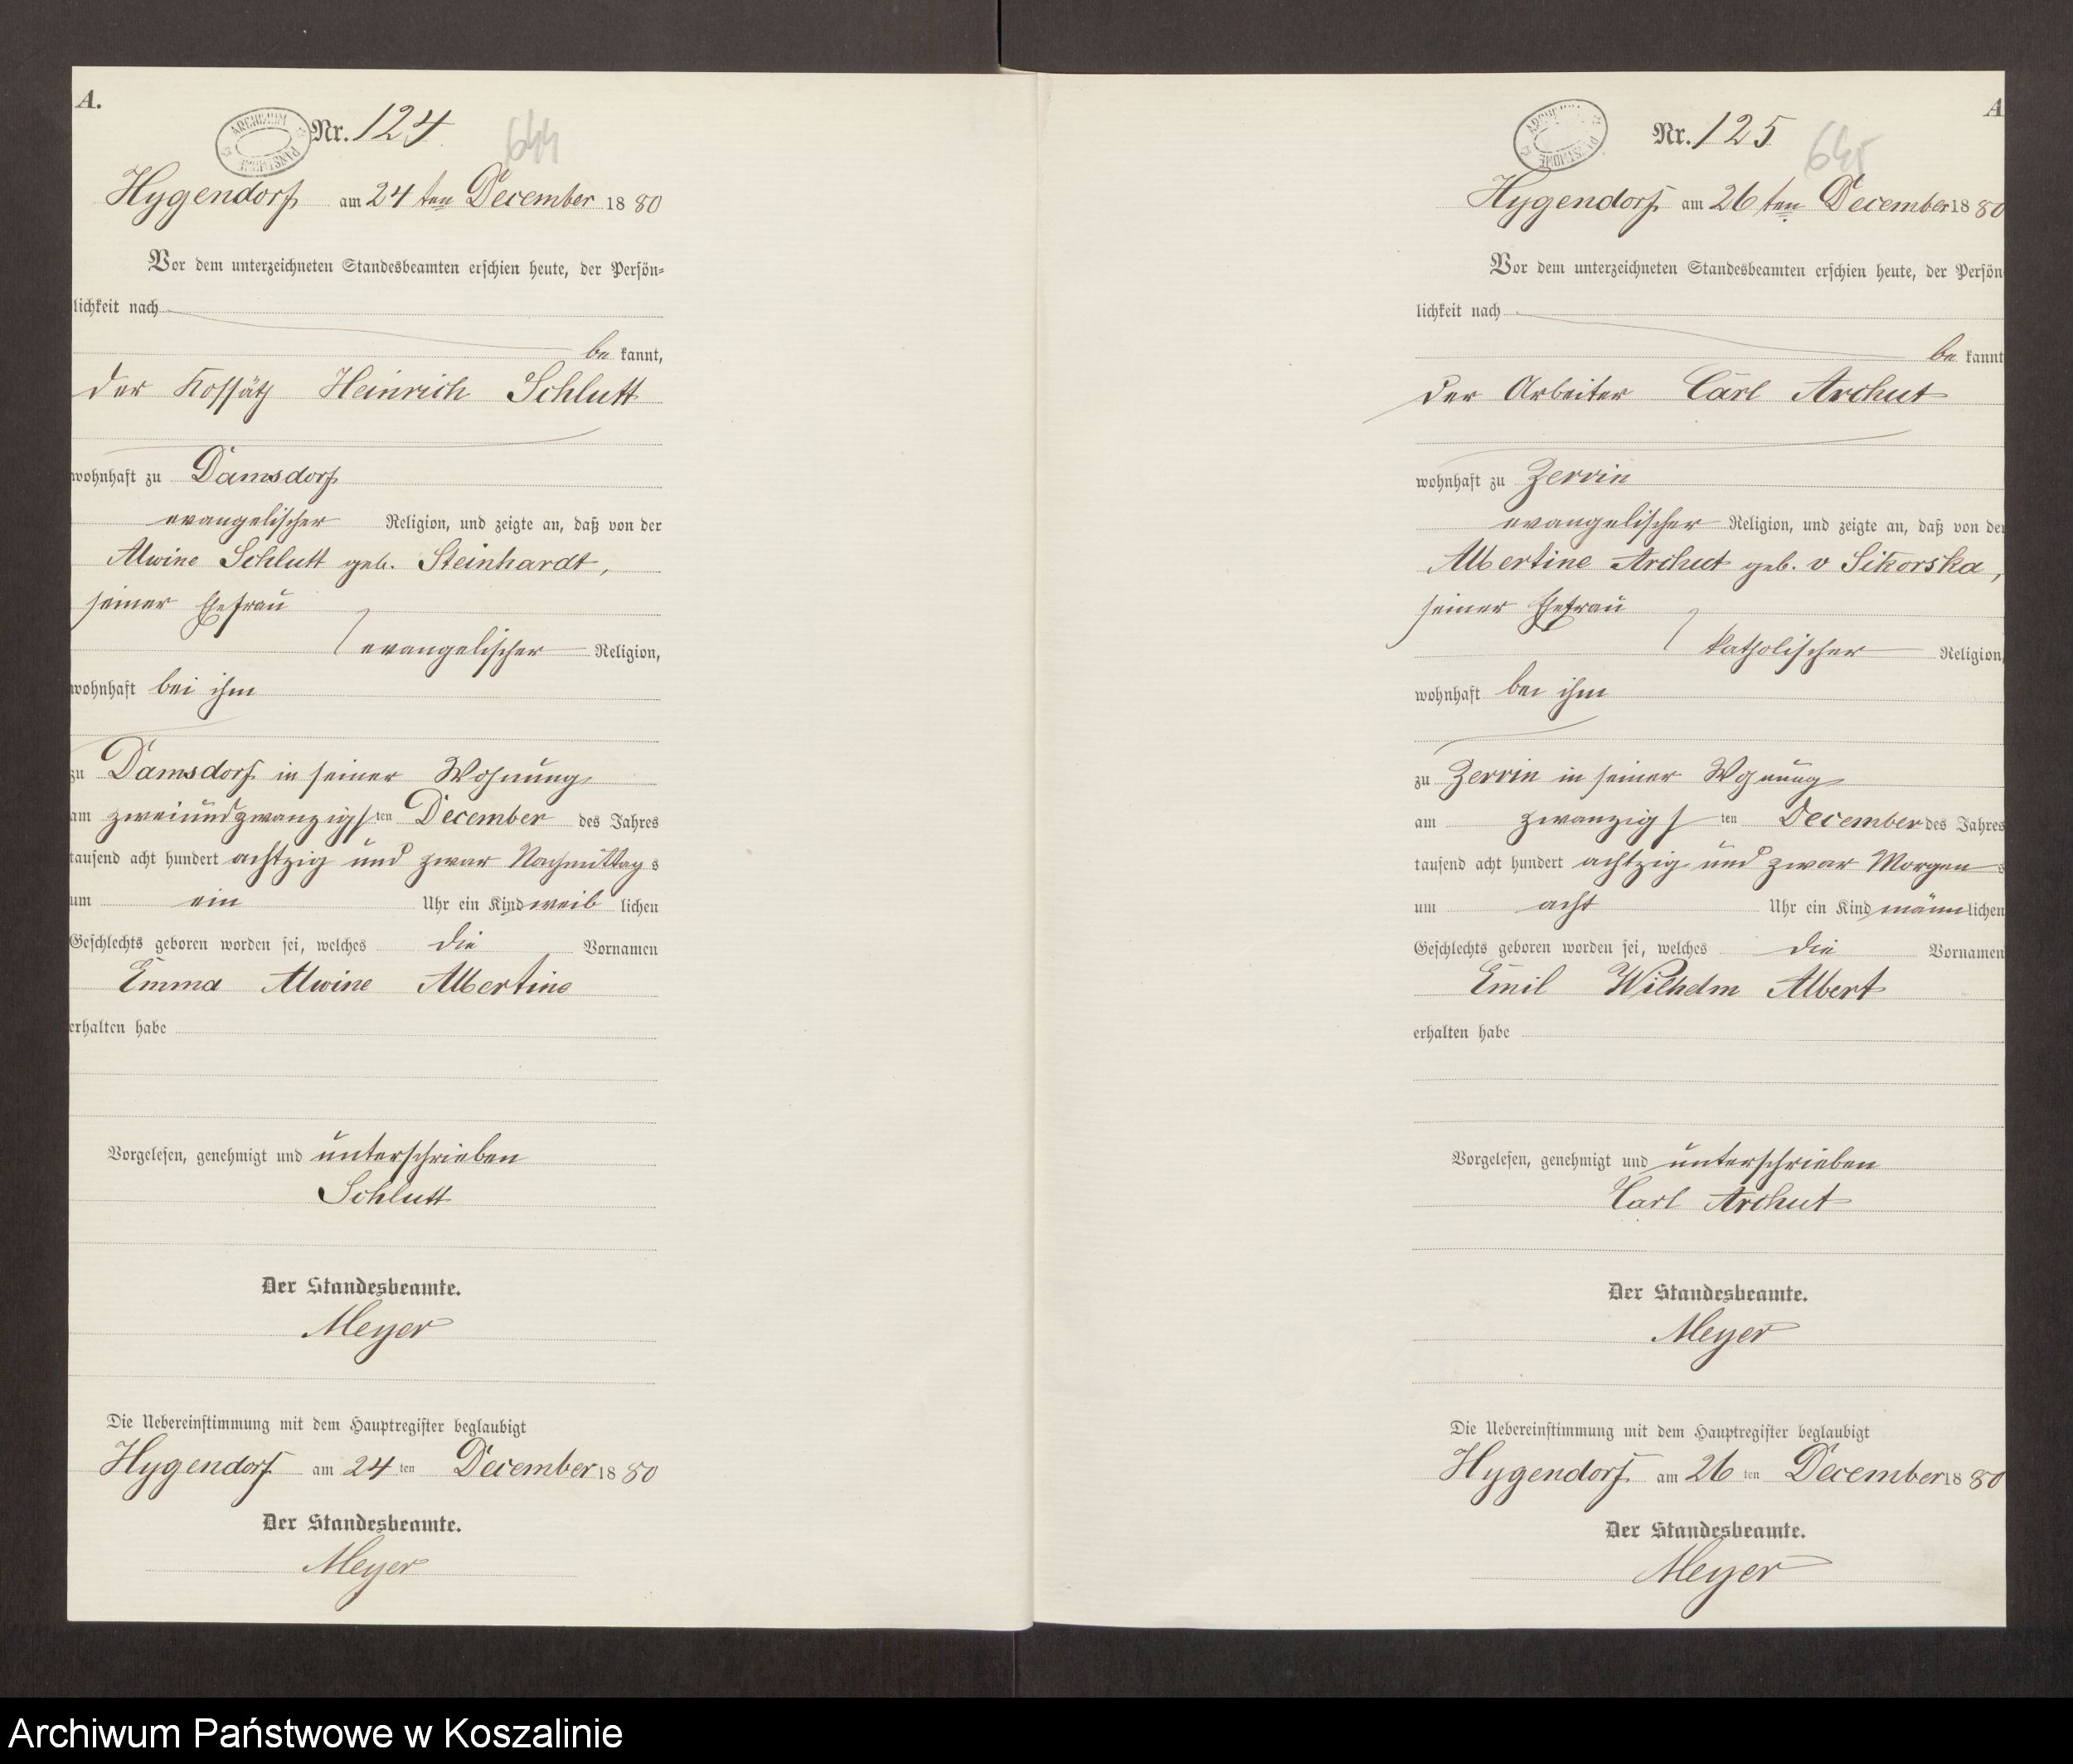 A.
ARCHIWUM PAŃSTWOWE
Nr. 124
644
Hygendorf am 24 ten December 1880
Vor dem unterzeichneten Standesbeamten erschien heute, der Persön-
lichkeit nach
be kannt,
der Kossäth Heinrich Schlutt
wohnhaft zu Damsdorf
evangelischer Religion, und zeigte an, daß von der
Alwine Schlutt geb. Steinhardt,
seiner Ehefrau
evangelischer Religion,
wohnhaft bei ihm
zu Damsdorf in seiner Wohnung
am zweiundzwanzigsten December des Jahres
tausend acht hundert achtzig und zwar Nachmittags
um ein Uhr ein Kind weiblichen
Geschlechts geboren worden sei, welches die Vornamen
Emma Alwine Albertine
erhalten habe
Vorgelesen, genehmigt und unterschrieben
Schlutt
Der Standesbeamte.
Meyer
Die Uebereinstimmung mit dem Hauptregister beglaubigt
Hygendorf am 24 ten December 1880
Der Standesbeamte.
Meyer
A
ARCHIWUM PAŃSTWOWE
Nr. 125
645
Hygendorf am 26 ten December 1880
Vor dem unterzeichneten Standesbeamten erschien heute, der Persön
lichkeit nach
be kannt
der Arbeiter Carl Archut
wohnhaft zu Zerrin
evangelischer Religion, und zeigte an, daß von der
Albertine Archut geb. v Sikorska,
seiner Ehefrau
katholischer Religion,
wohnhaft bei ihm
zu Zerrin in seiner Wohnung
am zwanzigsten December des Jahres
tausend acht hundert achtzig und zwar Morgens
um acht Uhr ein Kind männlichen
Geschlechts geboren worden sei, welches die Vornamen
Emil Wilhelm Albert
erhalten habe
Vorgelesen, genehmigt und unterschrieben
Carl Archut
Der Standesbeamte.
Meyer
Die Uebereinstimmung mit dem Hauptregister beglaubigt
Hygendorf am 26 ten December 1880
Der Standesbeamte.
Meyer
Archiwum Państwowe w Koszalinie